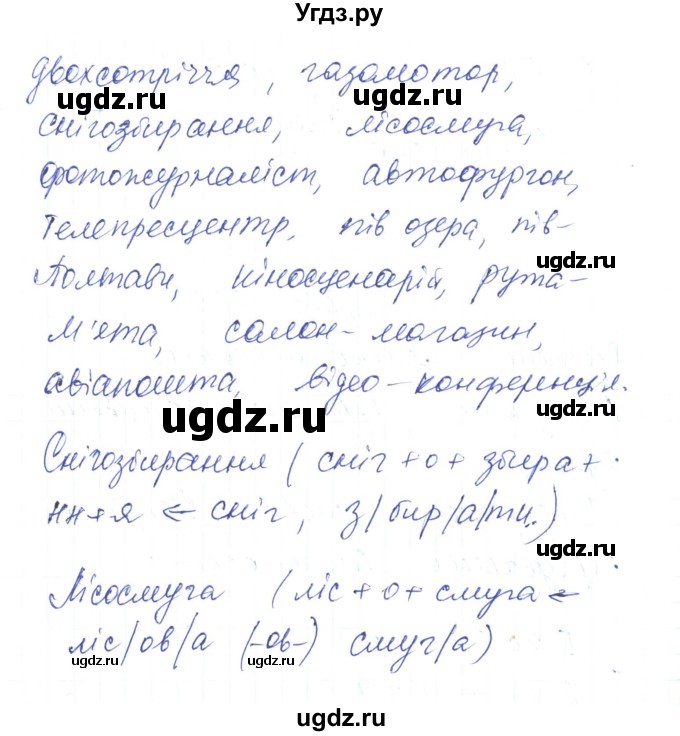 Угдз.ру
двохсотріччя, газомотор,
ugdz.ru ugdz.ru
снігозбирання, лісосмуга,
фотожурналіст, автофургон,
телепресцентр, пів озера, пів-
ugdz.ru
Полтави, кіносценарій, рута-
м'ята, салон-магазин,
авіапошта, відео-конференція.
ugdz.ru ugdz.ru
Снігозбирання (сніг + о + збира +
нн + я ← сніг, з/бир/а/ти.)
ugdz.ru
Лісосмуга (ліс + о + смуга ←
ліс/ов/а (-ов-) смуг/а)
ugdz.ru ugdz.ru
ugdz.ru